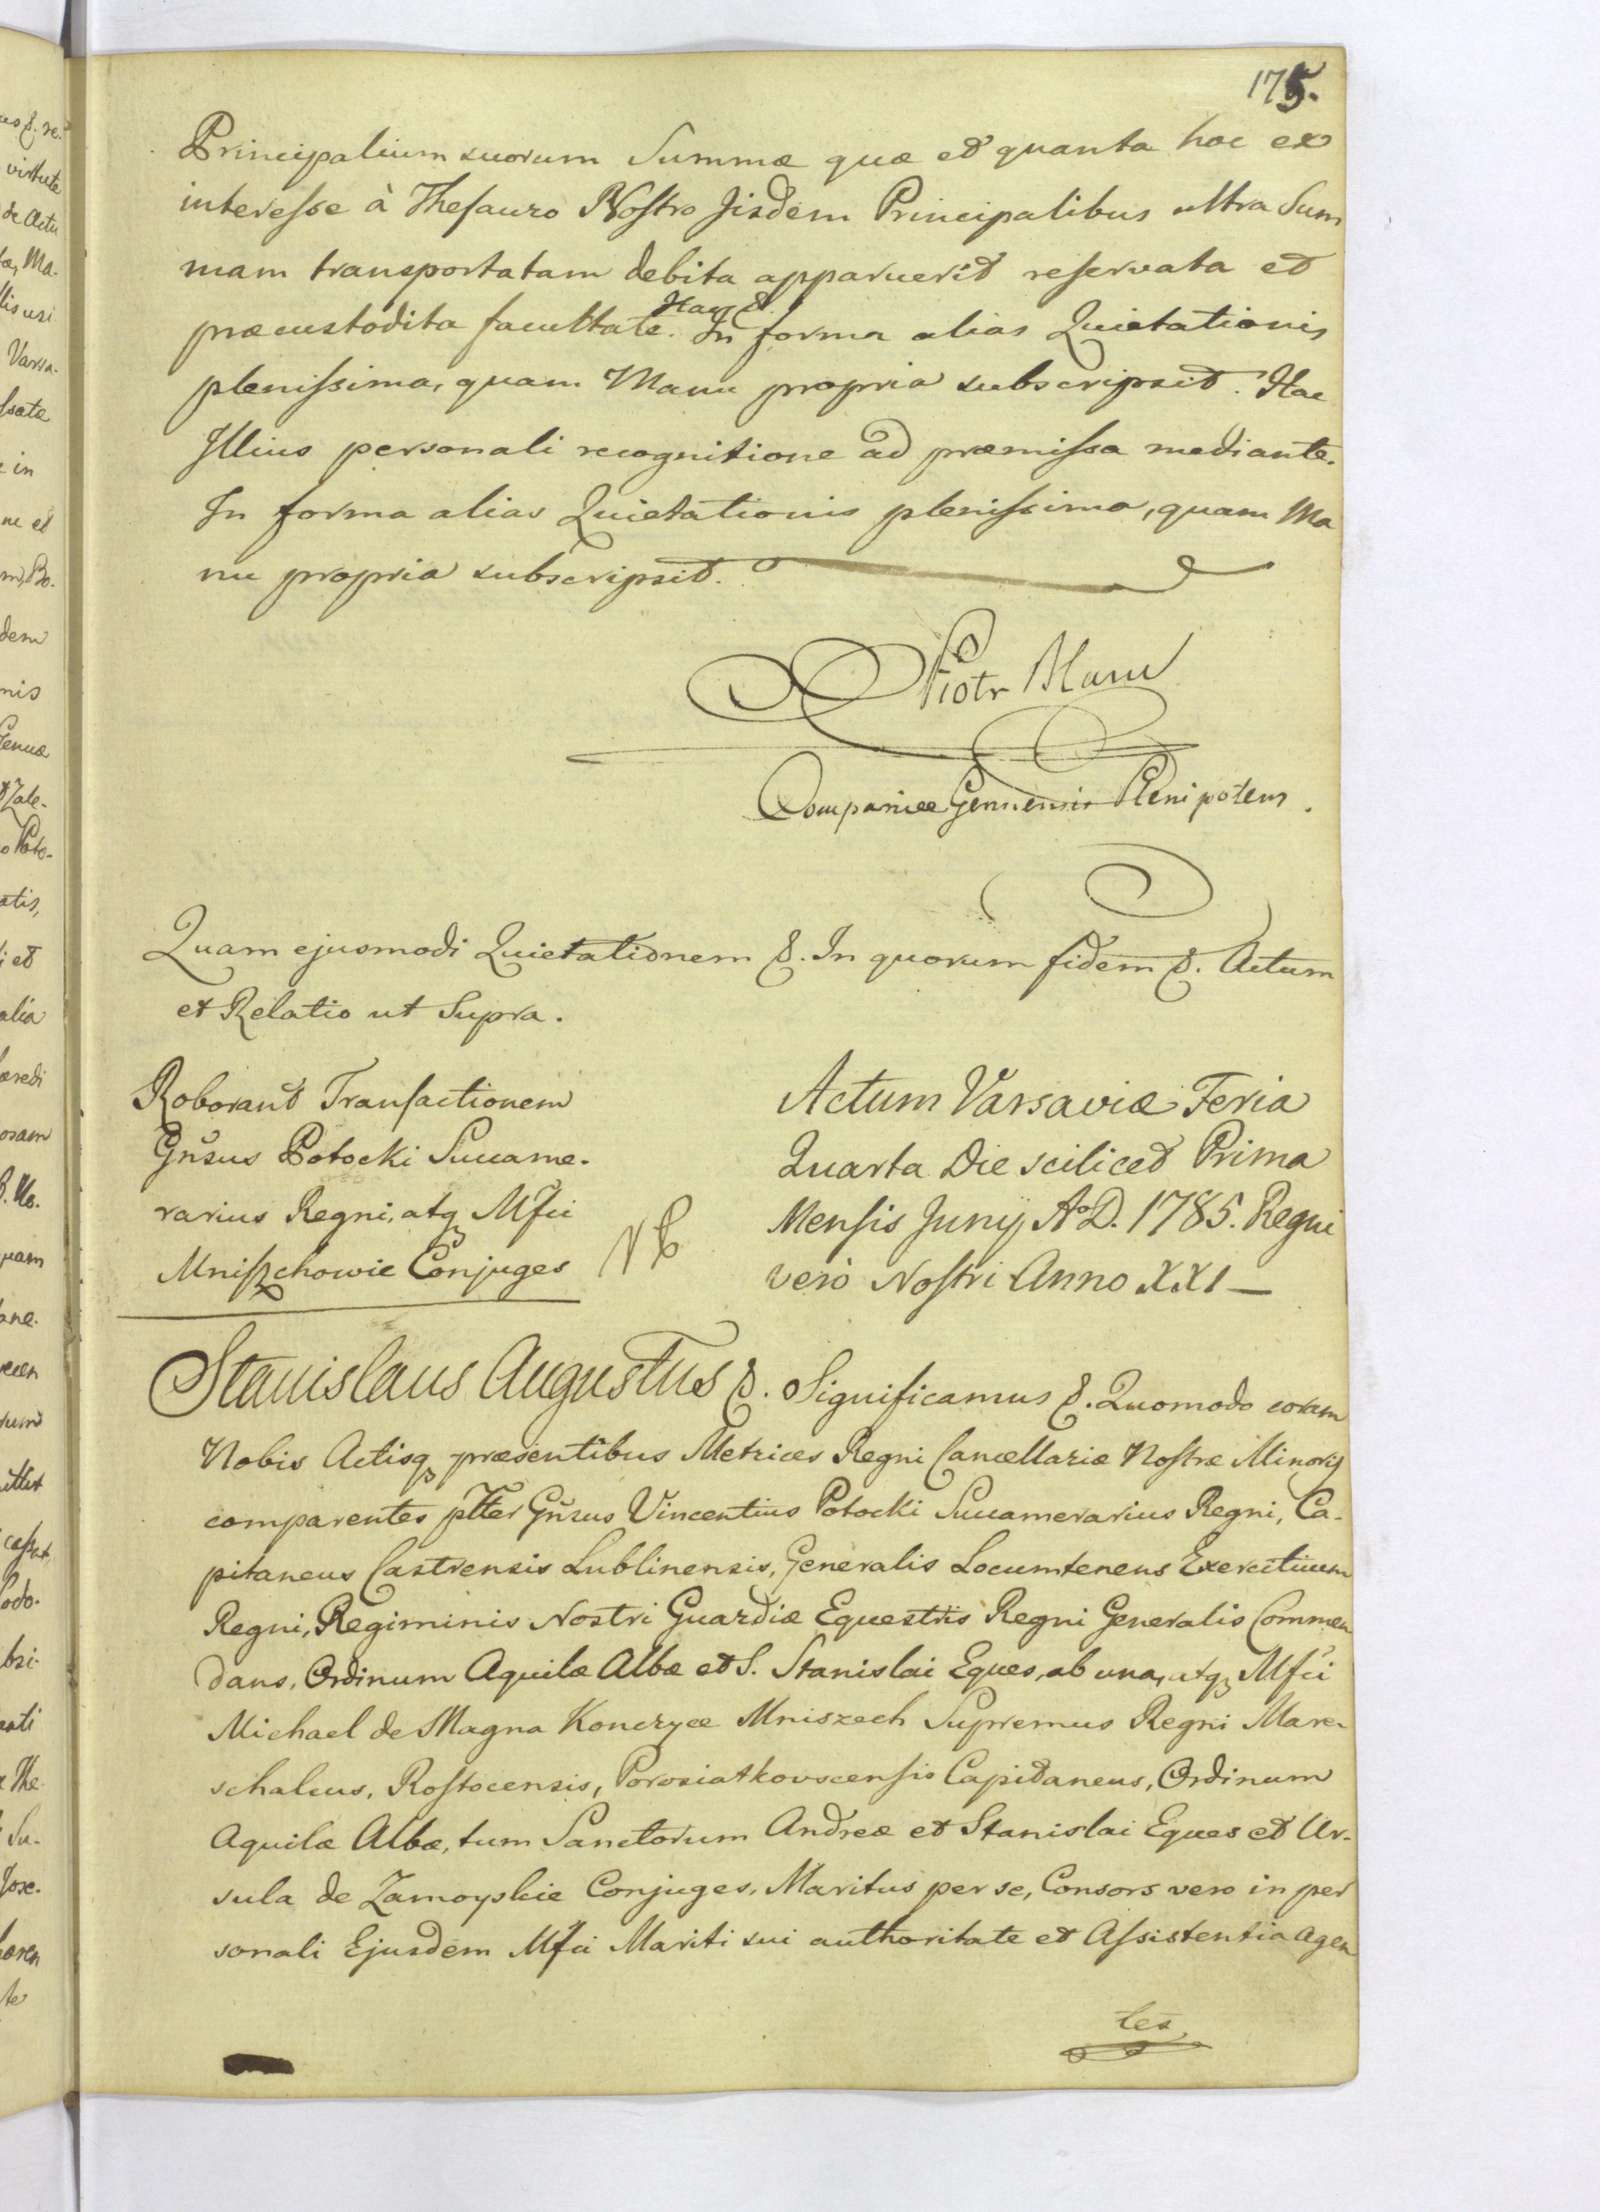 175.
Principalium suorum Summæ quæ et quanta hoc ex
interesse à Thesauro Nostro Jisdem Principalibus ultra Sum
mam transportatam debita apparuerit reservata et
præcustodita facultate. Hac &. In forma alias Quietationis
plenissima, quam Manu propria subscripsit. Hac
Illius personali recognitione ad præmissa mediante.
In forma alias Quietationis plenissima, quam Ma
nu propria subscripsit.
Piotr Blanc
Companiae Genuensis Plenipotens.
Quam ejusmodi Quietationem &. In quorum fidem &. Actum
et Relatio ut Supra.
Roborant Transactionem
Gñsus Potocki Succame-
rarius Regni, atq Mfci
Mniszchowie Conjuges
Actum Varsaviæ Feria
Quarta Die scilicet Prima
Mensis Junij Aº D. 1785. Regni
verò Nostri Anno XXI
Stanislaus Augustus &. Significamus &. Quomodo coram
Nobis Actisq præsentibus Metrices Regni Cancellariæ Nostræ Minoris
comparentes pltter Gñsus Vincentius Potocki Succamerarius Regni, Ca-
pitaneus Castrensis Lublinensis, Generalis Locumtenens Exercituum
Regni, Regiminis Nostri Guardiæ Equestris Regni Generalis Commen
dans, Ordinum Aquilæ Albæ et S. Stanislai Eques, ab una, atq Mfci
Michael de Magna Konczyce Mniszech Supremus Regni Mare-
schalcus, Rostocensis, Porosiatkovscensis Capitaneus, Ordinum
Aquilæ Albæ, tum Sanctorum Andreæ et Stanislai Eques et Ur-
sula de Zamoyskie Conjuges, Maritus per se, Consors vero in per
sonali Ejusdem Mfci Mariti sui authoritate et Assistentia agen
tes